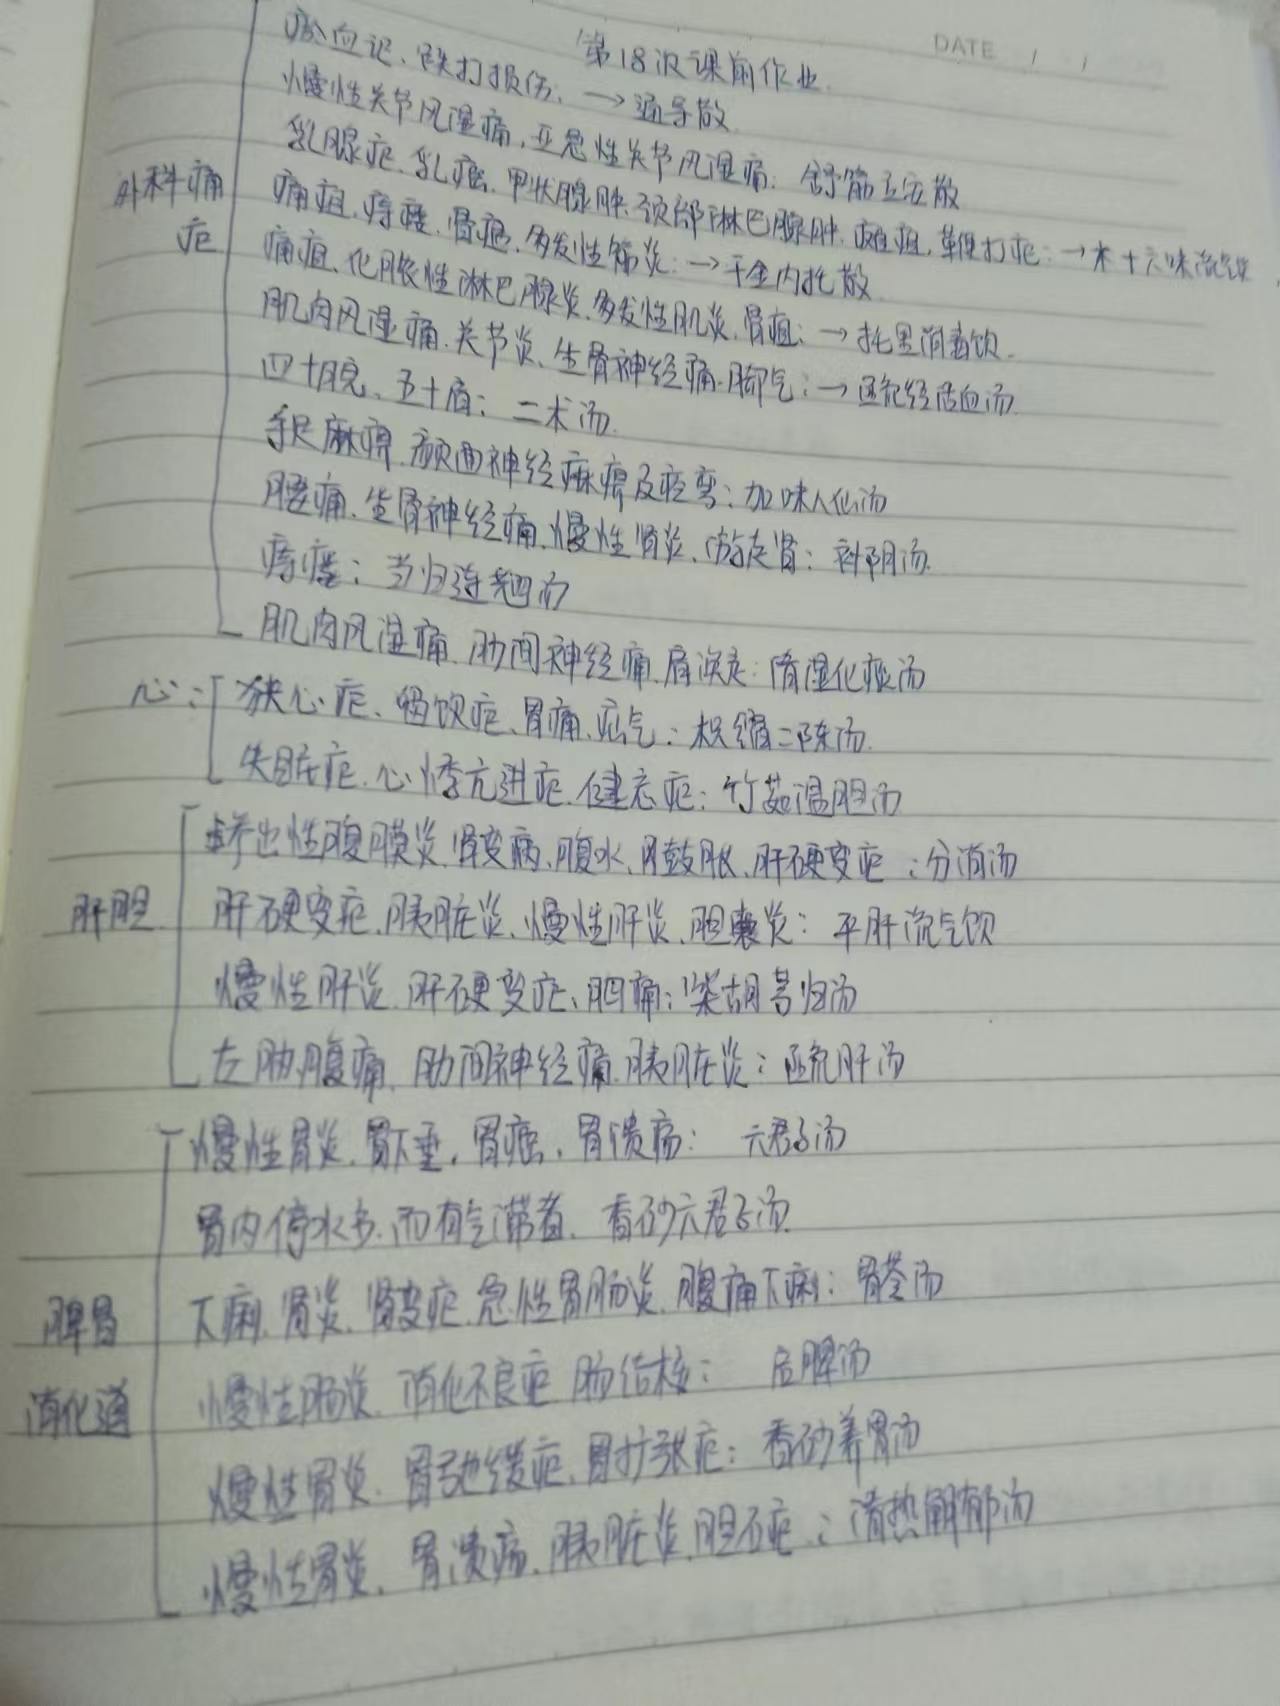 DATE / /
第18次课前作业.
瘀血记、跌打损伤. →通导散
慢性关节风湿痛,亚急性关节风湿痛: 舒筋立安散
乳腺症.乳癌.甲状腺肿.颈部淋巴腺肿. 瘰疽, 鞭打症:→木十六味流气饮
外科痛症
痈疽.痔瘘.骨疽.多发性筋炎:→千金内托散
痈疽、化脓性淋巴腺炎.多发性肌炎.骨疽:→托里消毒饮.
肌肉风湿痛.关节炎、坐骨神经痛.脚气:→疏经活血汤.
四十腕、五十肩: 二术汤.
手足麻痹.颜面神经麻痹及痉挛:加味八仙汤
腰痛.坐骨神经痛.慢性肾炎.游走肾: 补阴汤.
痔瘘: 当归连翘汤
肌肉风湿痛.肋间神经痛.肩 : 清湿化痰汤
心: 狭心症、 溜饮症、胃痛.疝气: 枳缩二陈汤.
失眠症.心悸亢进症.健忘症: 竹茹温胆汤
渗出性腹膜炎.肾变病、腹水、鼓胀、肝硬变症 :分消汤
肝胆 肝硬变症.胰脏炎、慢性肝炎.胆囊炎: 平肝流气饮
慢性肝炎.肝硬变症、胸痛:柴胡芎归汤
左胁腹痛. 肋间神经痛.胰脏炎: 疏肝汤
慢性胃炎.胃下垂.胃癌.胃溃疡: 六君子汤
胃内停水多.而有气滞者. 香砂六君子汤.
脾胃 下痢.胃炎.肾变症.急性胃肠炎.腹痛下痢: 胃苓汤
消化道 慢性肠炎.消化不良症 肠结核: 启脾汤
慢性胃炎.胃弛缓症.胃扩张症: 香砂养胃汤
慢性胃炎.胃溃疡.胰脏炎.胆石症: 清热解郁汤